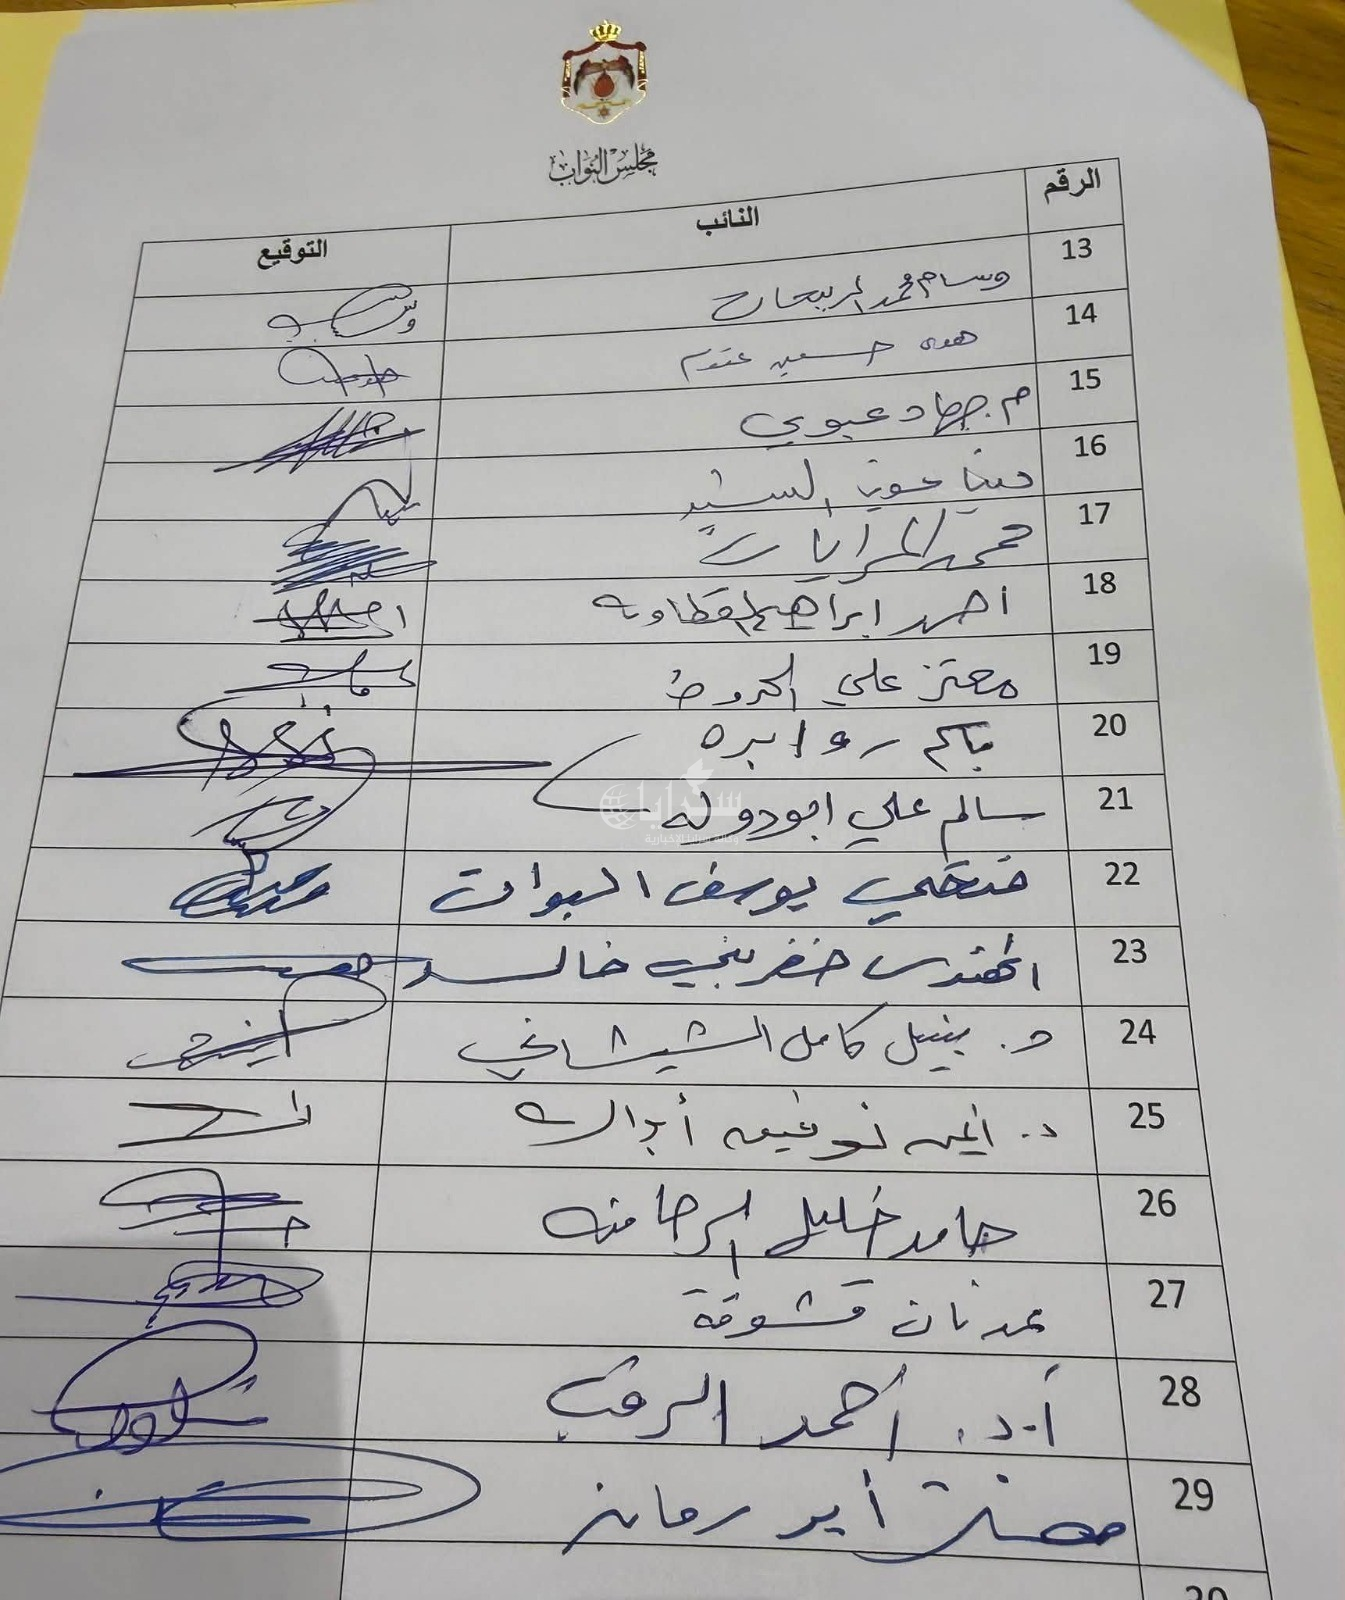 مجلس النواب
الرقم النائب التوقيع
13 وسام محمد الربيحات
14 هدى حسين عتوم
15 م. جهاد عبوي
16 دينا عوني البشير
17 محمد المرايات
18 احمد ابراهيم القطاونه
19 معتز علي الهروط
20 باسم روابده
21 سالم علي ابودوله
22 فتحي يوسف البوات
23 المهندس خضر بني خالد
24 د. نبيل كامل الشيشاني
25 د. ايمن توفيق أبو
26 حامد خليل الرحامنه
27 عدنان قشوقة
28 أ.د. أحمد الرقب
29 أبو رمان
30
سرايا
وكالة سرايا الإخبارية